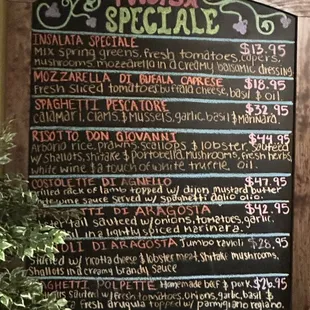 SPECIALE
INSALATA SPECIALE $13.95
Mix spring greens, fresh tomatoes, capers,
mushrooms, mozzarella in a creamy balsamic dressing
MOZZARELLA DI BUFALA CAPRESE $18.95
Fresh sliced tomatoes, buffala cheese, basil & oil
SPAGHETTI PESCATORE $32.95
calamari, clams & mussels, garlic, basil & marinara.
RISOTTO DON GIOVANNI $44.95
Arborio rice, prawns, scallops & lobster, sauteed
w/ shallots, shitake & portobella mushrooms, fresh herbs,
white wine & a touch of white truffle oil.
COSTOLETTE DI AGNELLO $47.95
rack of lamb topped w/ dijon mustard butter
wine sauce served w/ spaghetti aglio olio.
DI ARAGOSTA $42.95
tail sauteed w/ onions, tomatoes, garlic,
in a lightly spiced marinara.
OLI DI ARAGOSTA Jumbo ravioli $28.95
stuffed w/ ricotta cheese & lobster meat, shitaki mushrooms,
shallots in a creamy brandy sauce
POLPETTE Homemade beef & pork $26.95
w/ fresh tomatoes, onions, garlic, basil &
fresh arugula topped w/ parmigiano regiano.